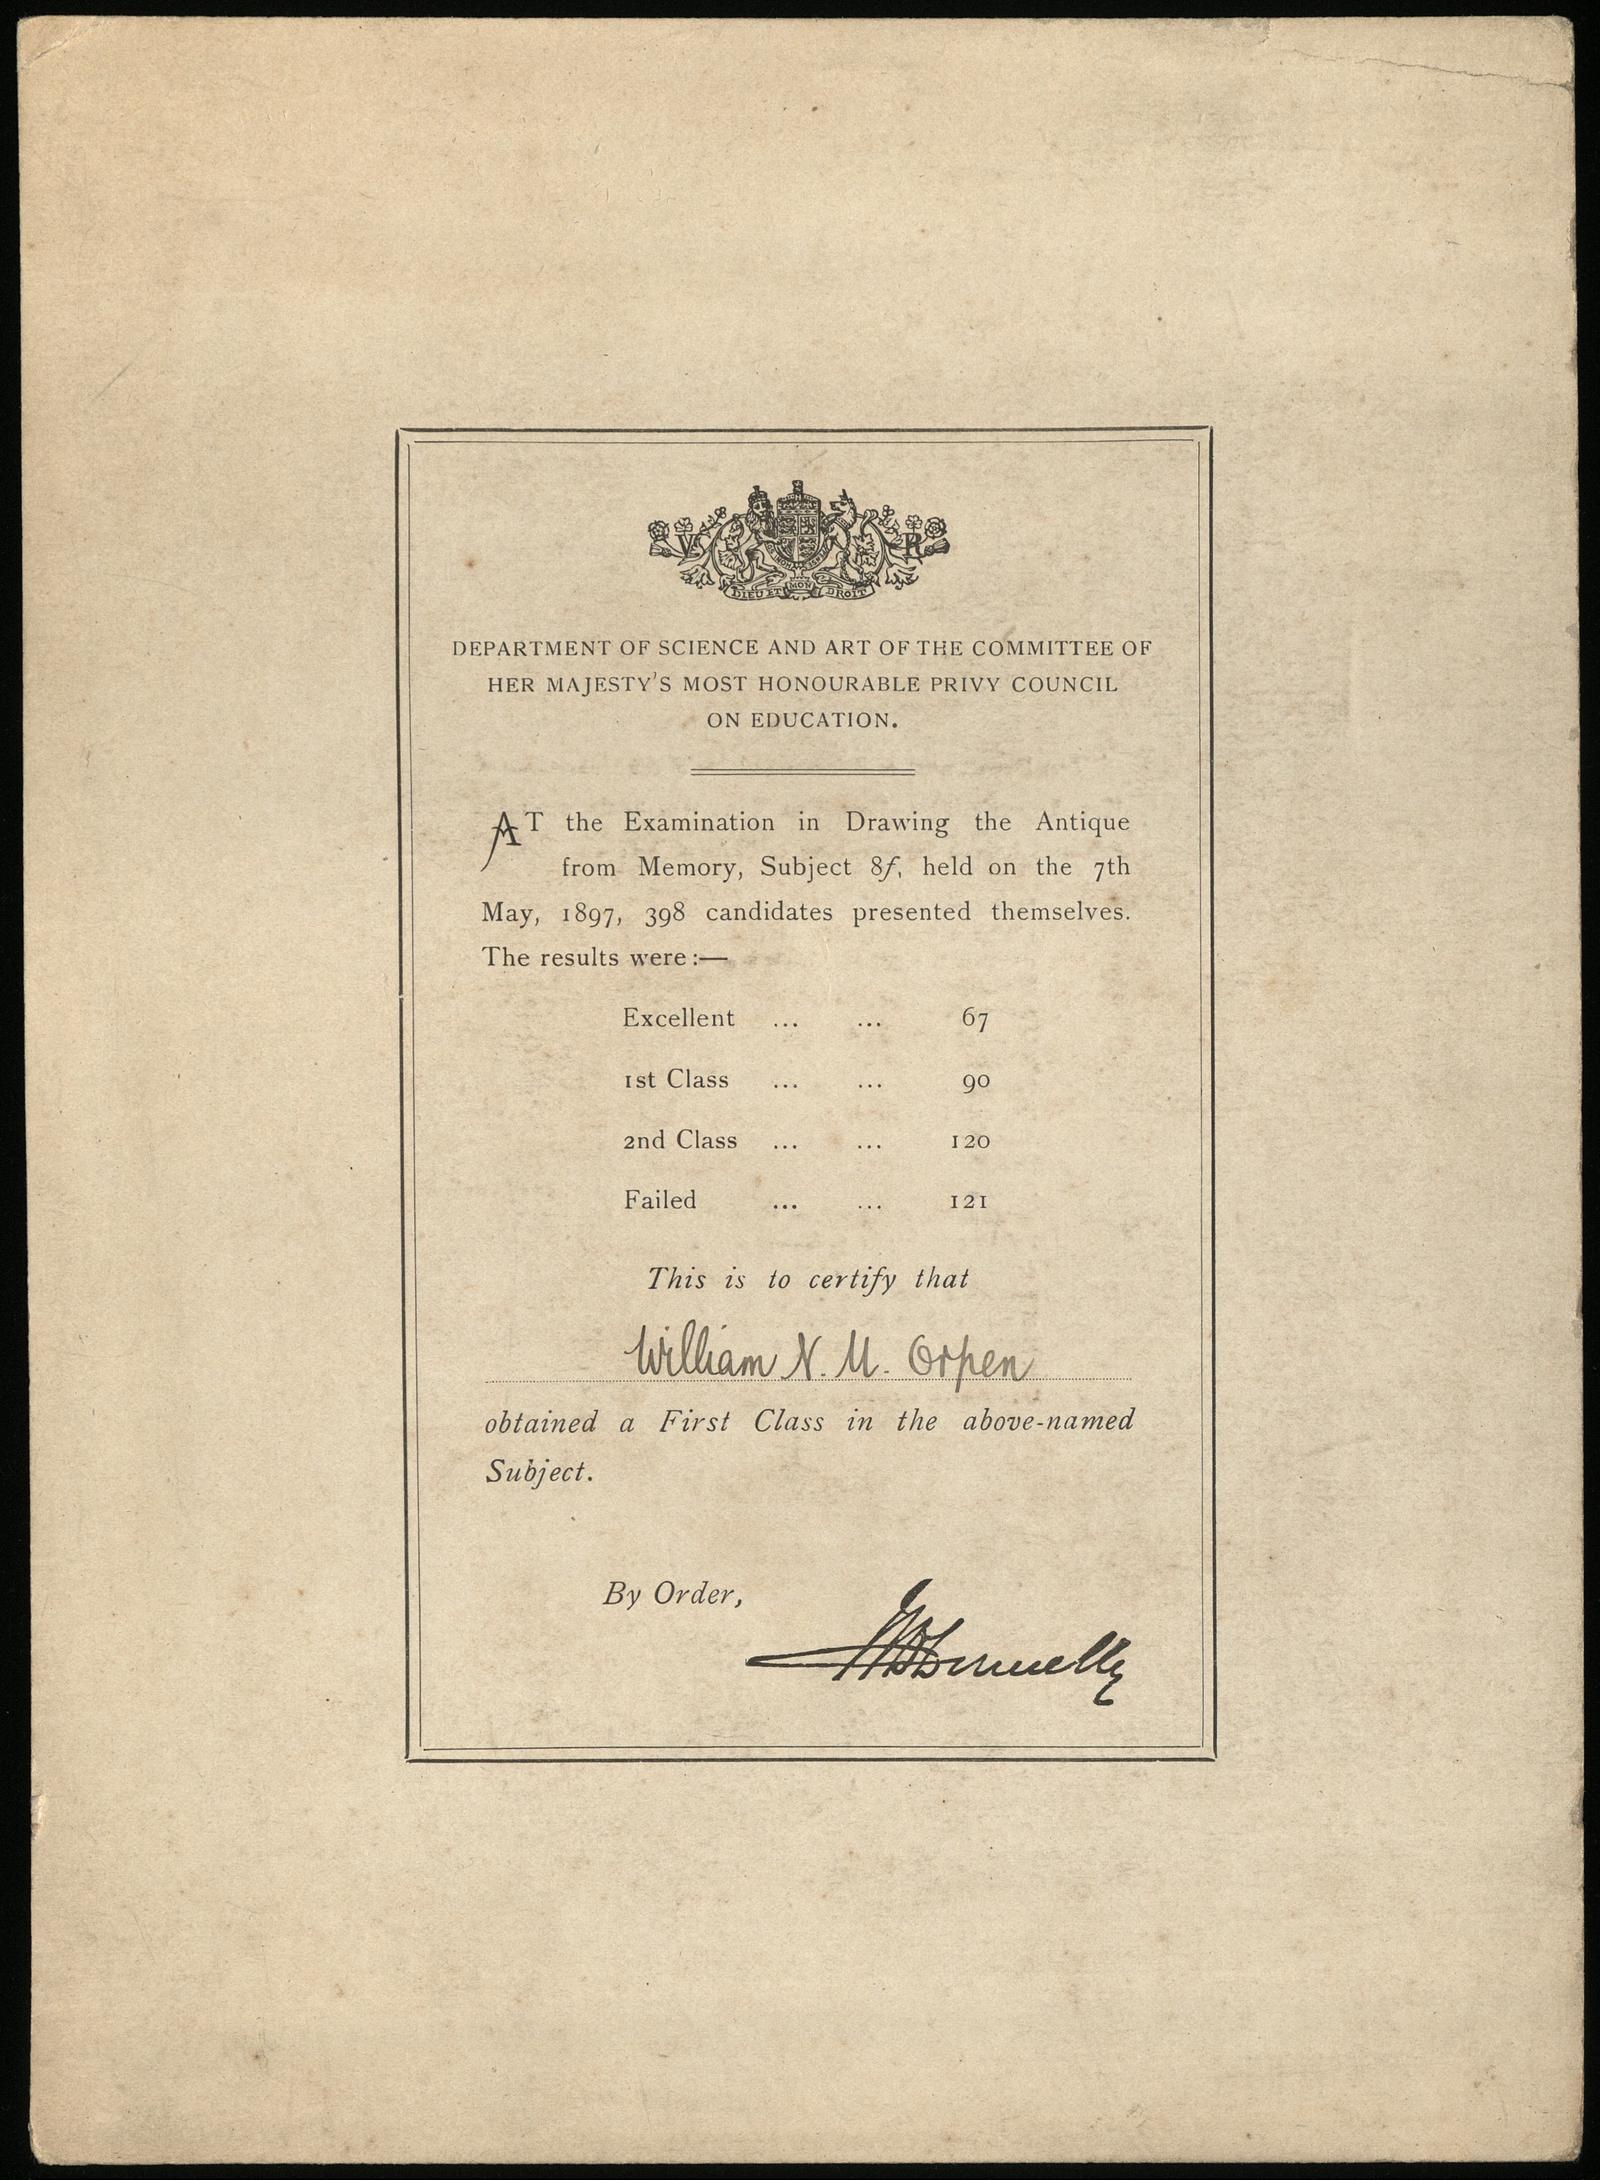 V R
DIEU ET MON DROIT
DEPARTMENT OF SCIENCE AND ART OF THE COMMITTEE OF
HER MAJESTY'S MOST HONOURABLE PRIVY COUNCIL
ON EDUCATION.
AT the Examination in Drawing the Antique
from Memory, Subject 8f, held on the 7th
May, 1897, 398 candidates presented themselves.
The results were:—
Excellent ... ... 67
1st Class ... ... 90
2nd Class ... ... 120
Failed ... ... 121
This is to certify that
William N. M. Orpen
obtained a First Class in the above-named
Subject.
By Order,
Donnelly